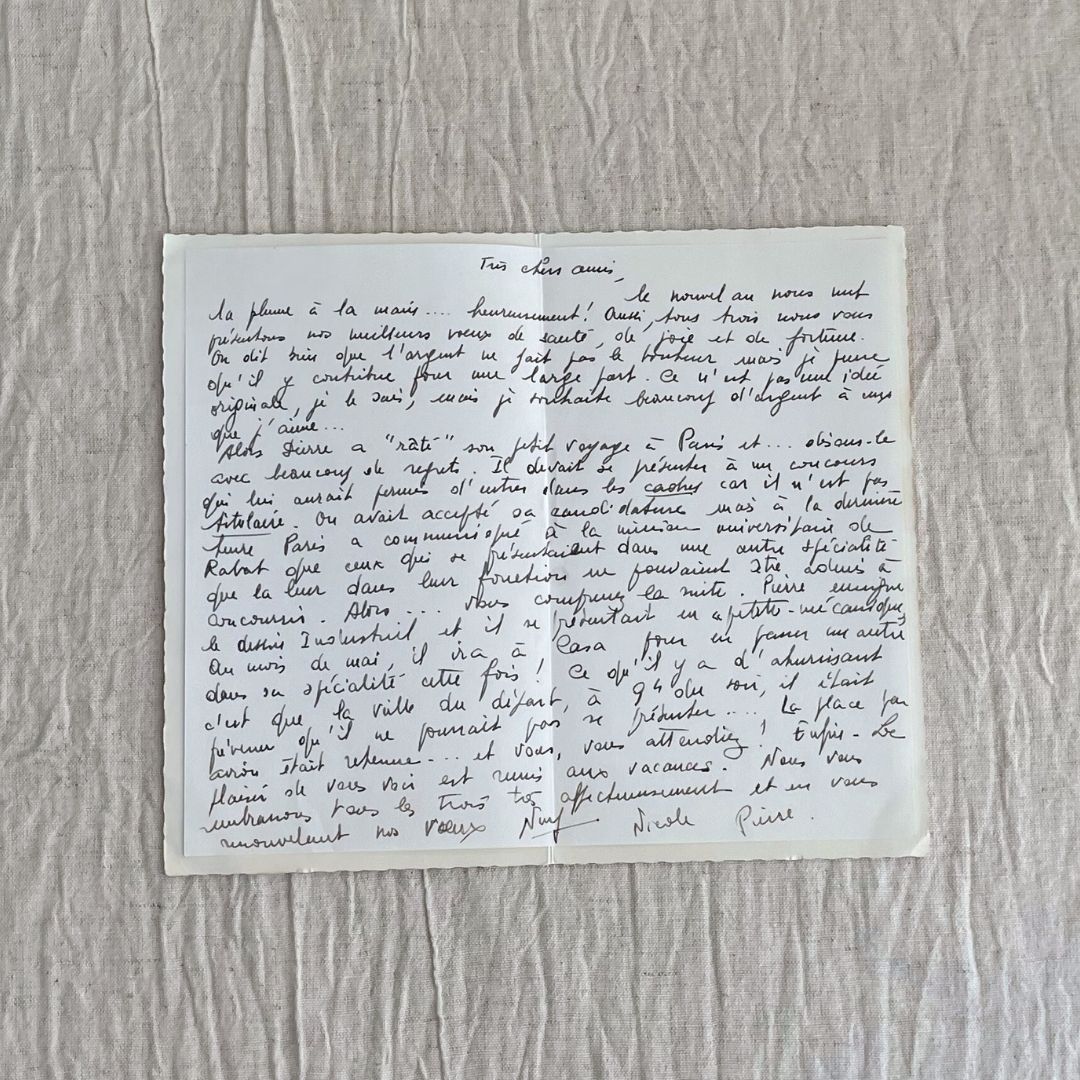 Très chers amis,
Le nouvel an nous met
la plume à la main.... heureusement! Aussi, tous trois nous vous
présentons nos meilleurs voeux de santé, de joie et de fortune.
On dit bien que l'argent ne fait pas le bonheur mais je pense
qu'il y contribue pour une large part. Ce n'est pas une idée
originale, je le sais, mais je souhaite beaucoup d'argent à ceux
que j'aime...
Alors Pierre a "râté" son petit voyage à Paris et... disons-le
avec beaucoup de regrets. Il devait se présenter à un concours
qui lui aurait permis d'entrer dans les cadres car il n'est pas
titulaire. On avait accepté sa candidature mais à la dernière
heure Paris a communiqué à la mission universitaire de
Rabat que ceux qui se présentaient dans une autre spécialité
que la leur dans leur fonction ne pouvaient être admis à
concourir. Alors.... vous comprenez la suite. Pierre enseigne
le dessin Industriel et il se présentait en "petite-mécanique"
Au mois de mai, il ira à Casa pour en passer un autre
dans sa spécialité cette fois! Ce qu'il y a d'ahurissant
c'est que la veille du départ, à 9h du soir, il était
prévenu qu'il ne pourrait pas se présenter.... La place par
avion était retenue.... et vous, vous attendiez! Enfin - Le
plaisir de vous voir est remis aux vacances. Nous vous
embrassons tous les trois très affectueusement et en vous
renouvelant nos voeux Nicole Pierre.